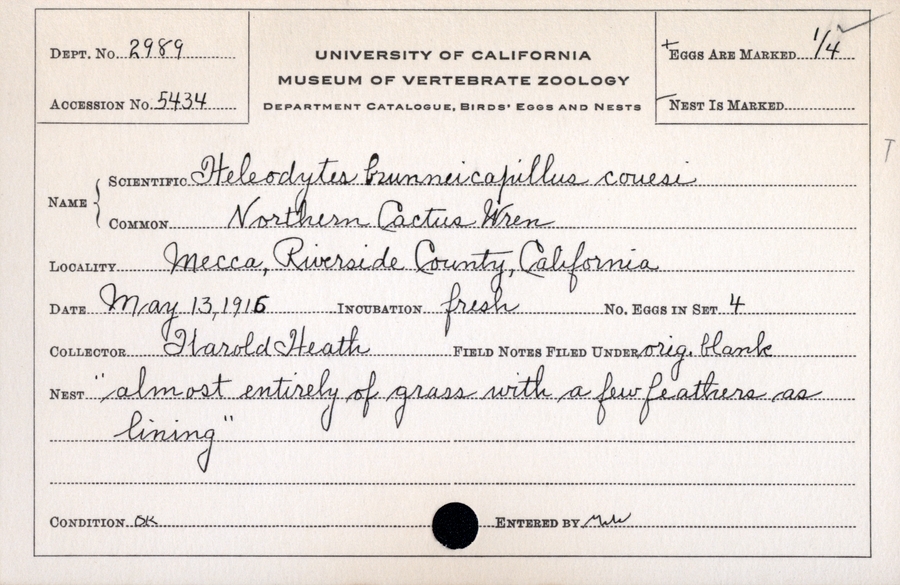 DEPT. No. 2989
ACCESSION No. 5434
UNIVERSITY OF CALIFORNIA
MUSEUM OF VERTEBRATE ZOOLOGY
DEPARTMENT CATALOGUE, BIRDS' EGGS AND NESTS
+EGGS ARE MARKED 1/4
NEST IS MARKED
T
NAME
SCIENTIFIC Heleodytes brunneicapillus couesi
COMMON Northern Cactus Wren
LOCALITY Mecca, Riverside County, California
DATE May 13, 1916 INCUBATION fresh NO. EGGS IN SET 4
COLLECTOR Harold Heath FIELD NOTES FILED UNDER orig. blank
NEST "almost entirely of grass with a few feathers as
lining"
CONDITION OK ENTERED BY